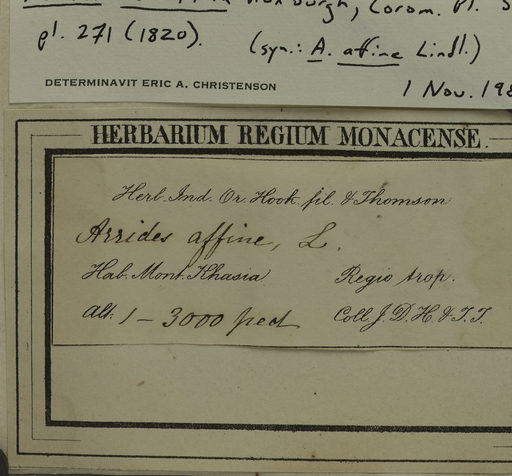 Roxburgh, Corom. pl.
pl. 271 (1820). (syn.: A. affine Lindl.)
DETERMINAVIT ERIC A. CHRISTENSON
1 Nov. 198
HERBARIUM REGIUM MONACENSE.
Herb. Ind. Or. Hook. fil. & Thomson
Aerides affine, L.
Hab. Mont. Khasia Regio trop.
Alt: 1 - 3000 ped Coll. J. D. H. & T. T.